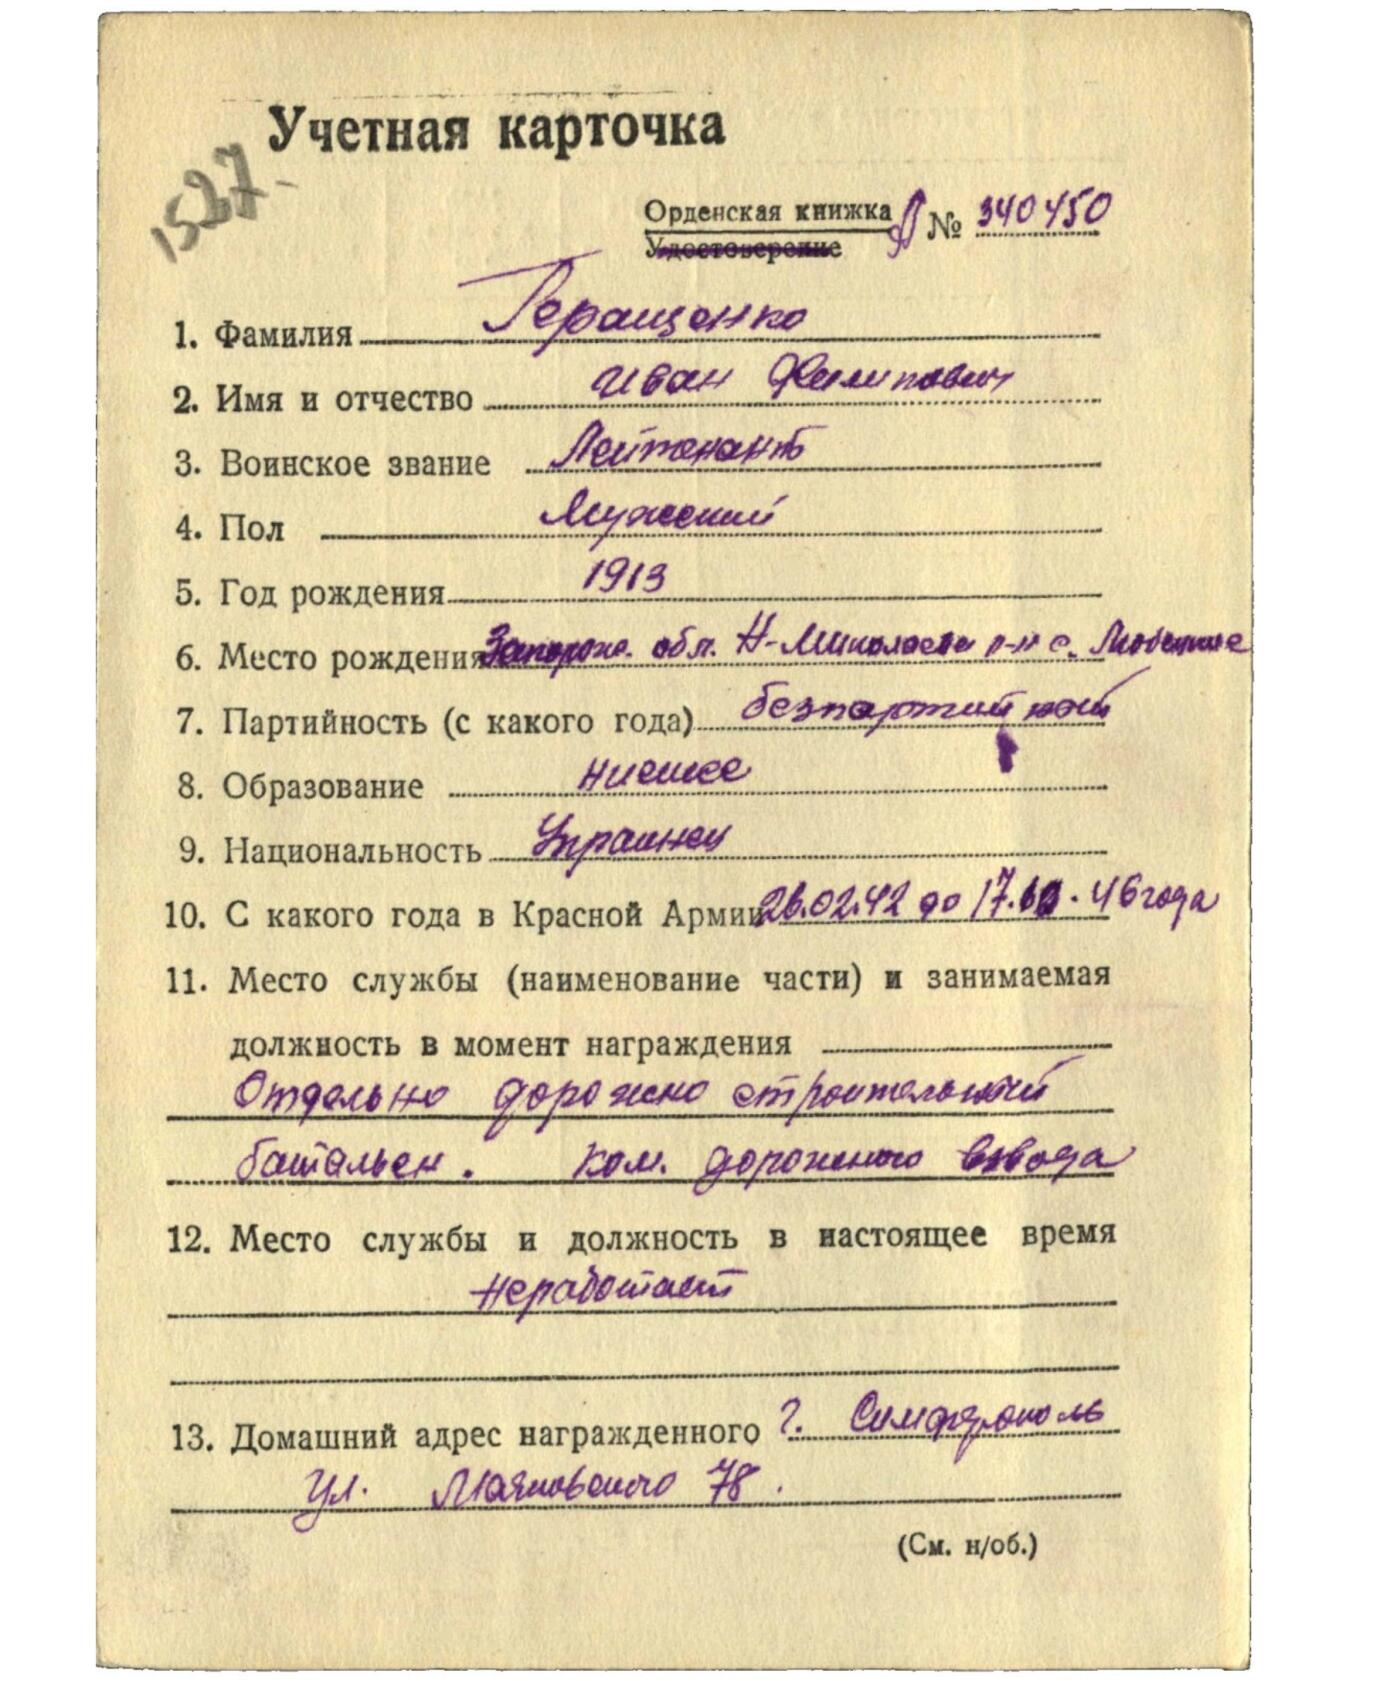 Учетная карточка
1527-
Орденская книжка Д № 340450
Удостоверение
1. Фамилия Геращенко
2. Имя и отчество Иван Филипович
3. Воинское звание Лейтенант
4. Пол Мужский
5. Год рождения 1913
6. Место рождения Запорож. обл. Н-Миколаевс р-н с.
7. Партийность (с какого года) безпартийной
8. Образование
9. Национальность Украинец
10. С какого года в Красной Армии 26.02.42 до 17. 46 года
11. Место службы (наименование части) и занимаемая
должность в момент награждения
Отдельно дорожно строительный
батальен. Ком. дорожного взвода
12. Место службы и должность в настоящее время
неработает
13. Домашний адрес награжденного г. Симферополь
ул. Маяковского 78.
(См. н/об.)